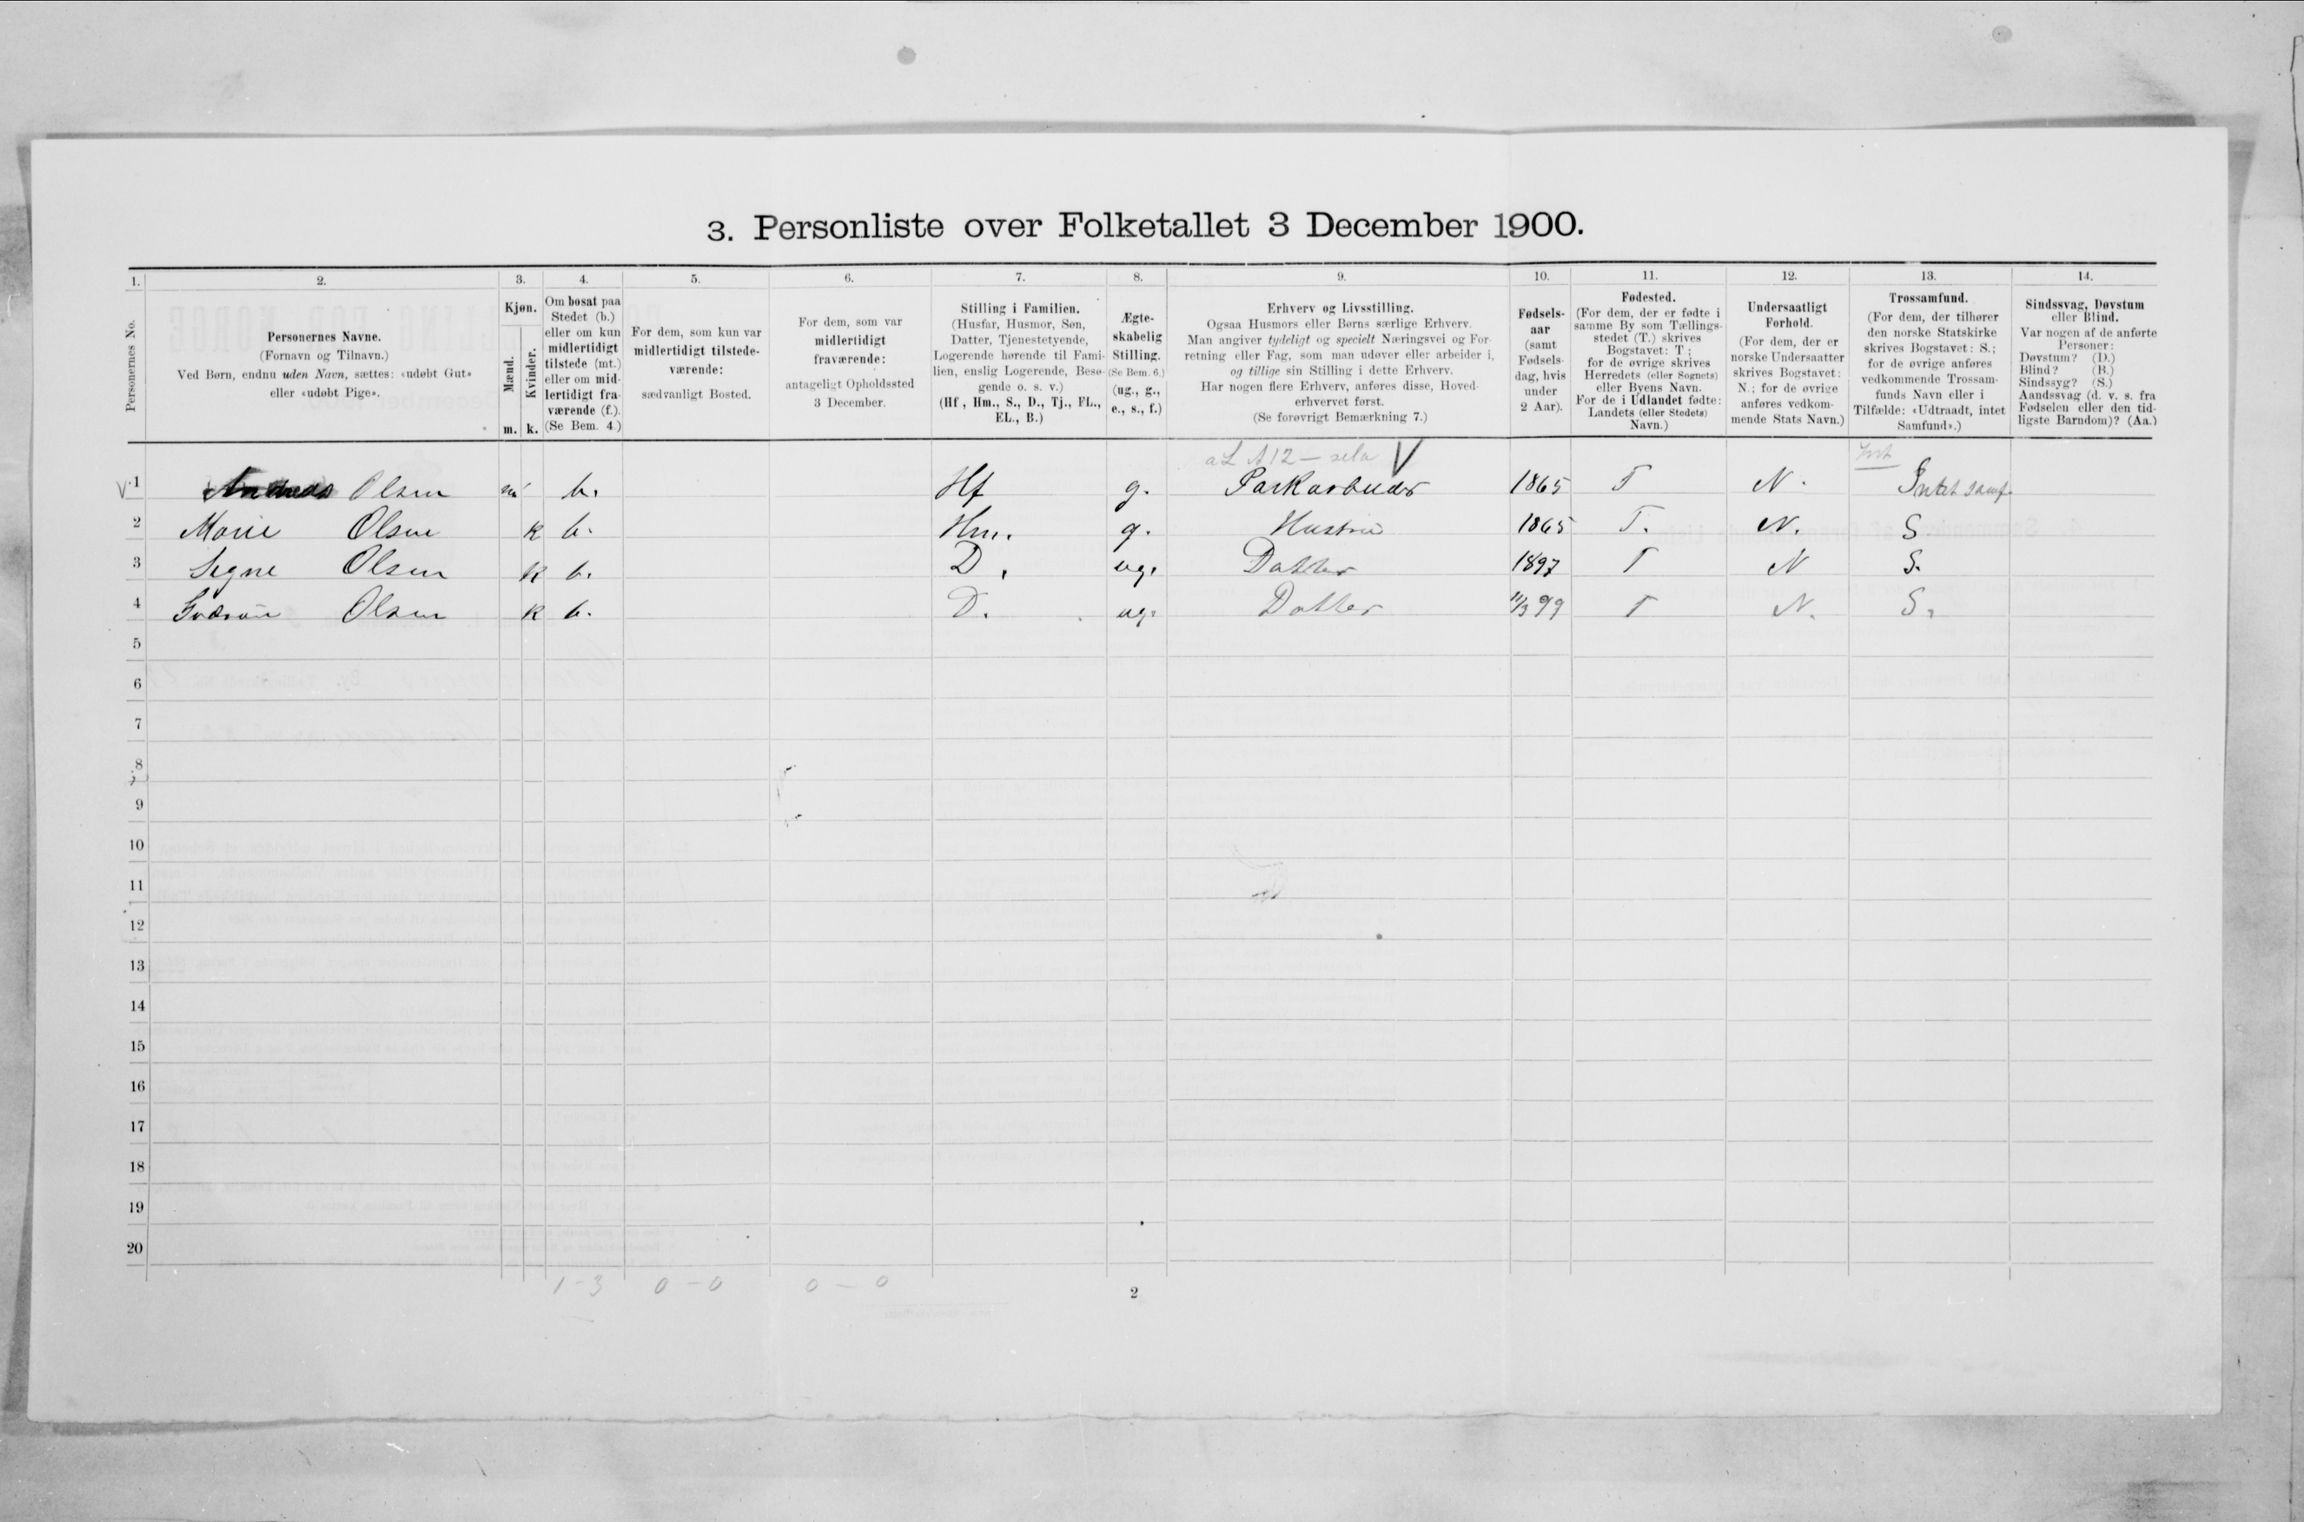 3. Personliste over Folketallet 3 December 1900.
1. 2. 3. 4. 5. 6. 7. 8. 9. 10. 11. 12. 13. 14.
Personernes No.
Personernes Navne.
(Fornavn og Tilnavn.)
Ved Børn, endnu uden Navn, sættes: «udøbt Gut»
eller «udøbt Pige».
Kjøn.
Mænd.
Kvinder.
m. k.
Om bosat paa
Stedet (b.)
eller om kun
midlertidigt
tilstede (mt.)
eller om mid-
lertidigt fra-
værende (f.).
(Se Bem. 4.)
For dem, som kun var
midlertidigt tilstede-
værende:
sædvanligt Bosted.
For dem, som var
midlertidigt
fraværende:
antageligt Opholdssted
3 December.
Stilling i Familien.
(Husfar, Husmor, Søn,
Datter, Tjenestetyende,
Logerende hørende til Fami-
lien, enslig Logerende, Besø-
gende o. s. v.)
(Hf., Hm., S., D., Tj., FL.,
EL., B.)
Ægte-
skabelig
Stilling.
(Se Bem. 6.)
(ug., g.,
e., s., f.)
Erhverv og Livsstilling.
Ogsaa Husmors eller Børns særlige Erhverv.
Man angiver tydeligt og specielt Næringsvei og For-
retning eller Fag, som man udøver eller arbeider i,
og tillige sin Stilling i dette Erhverv.
Har nogen flere Erhverv, anføres disse, Hoved-
erhvervet først.
(Se forøvrigt Bemærkning 7.)
Fødsels-
aar
(samt
Fødsels-
dag, hvis
under
2 Aar).
Fødested.
(For dem, der er fødte i
samme By som Tællings-
stedet (T.) skrives
Bogstavet: T;
for de øvrige skrives
Herredets (eller Sognets)
eller Byens Navn.
For de i Udlandet fødte:
Landets (eller Stedets)
Navn.)
Undersaatligt
Forhold.
(For dem, der er
norske Undersaatter
skrives Bogstavet:
N.; for de øvrige
anføres vedkom-
mende Stats Navn.)
Trossamfund.
(For dem, der tilhører
den norske Statskirke
skrives Bogstavet: S.;
for de øvrige anføres
vedkommende Trossam-
funds Navn eller i
Tilfælde: «Udtraadt, intet
Samfund».)
Sindssvag, Døvstum
eller Blind.
Var nogen af de anførte
Personer:
Døvstum? (D.)
Blind? (B.)
Sindssyg? (S.)
Aandssvag (d. v. s. fra
Fødselen eller den tid-
ligste Barndom)? (Aa.)
1 Olsen m b. Hf g. 1865 T N. Intet samf.
2 Marie Olsen k b. Hm. g. Hustru 1865 T. N. S
3 Signe Olsen k b. D. ug. Datter 1897 T N S.
4 Olsen k b. D. ug. Datter 11/3 99 T N. S.
5
6
7
8
9
10
11
12
13
14
15
16
17
18
19
20
1-3 0-0 0-0
2